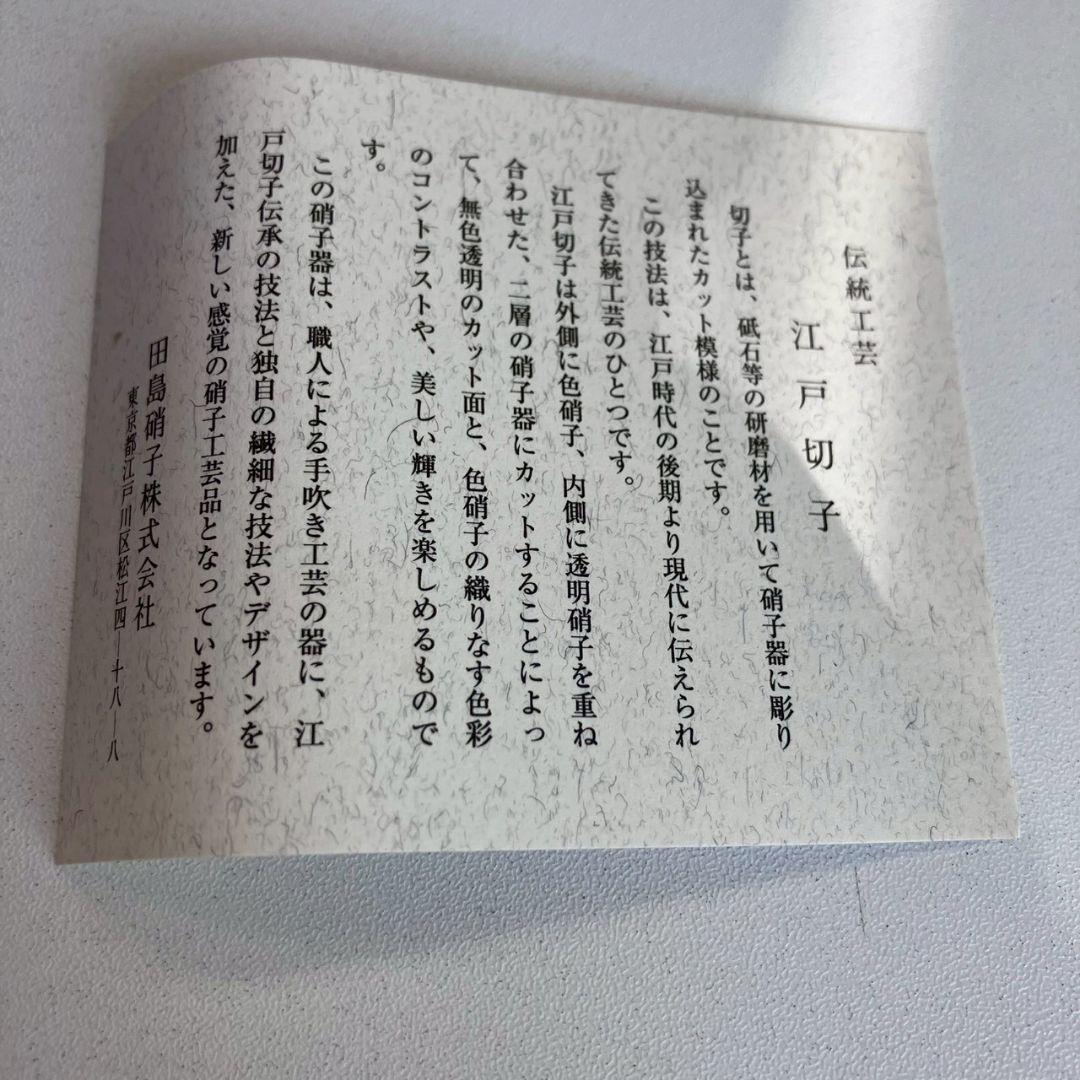 伝統工芸
江戸切子
切子とは、砥石等の研磨材を用いて硝子器に彫り
込まれたカット模様のことです。
この技法は、江戸時代の後期より現代に伝えられ
てきた伝統工芸のひとつです。
江戸切子は外側に色硝子、内側に透明硝子を重ね
合わせた、二層の硝子器にカットすることによっ
て、無色透明のカット面と、色硝子の織りなす色彩
のコントラストや、美しい輝きを楽しめるもので
す。
この硝子器は、職人による手吹き工芸の器に、江
戸切子伝承の技法と独自の繊細な技法やデザインを
加えた、新しい感覚の硝子工芸品となっています。
田島硝子株式会社
東京都江戸川区松江四―十八―八